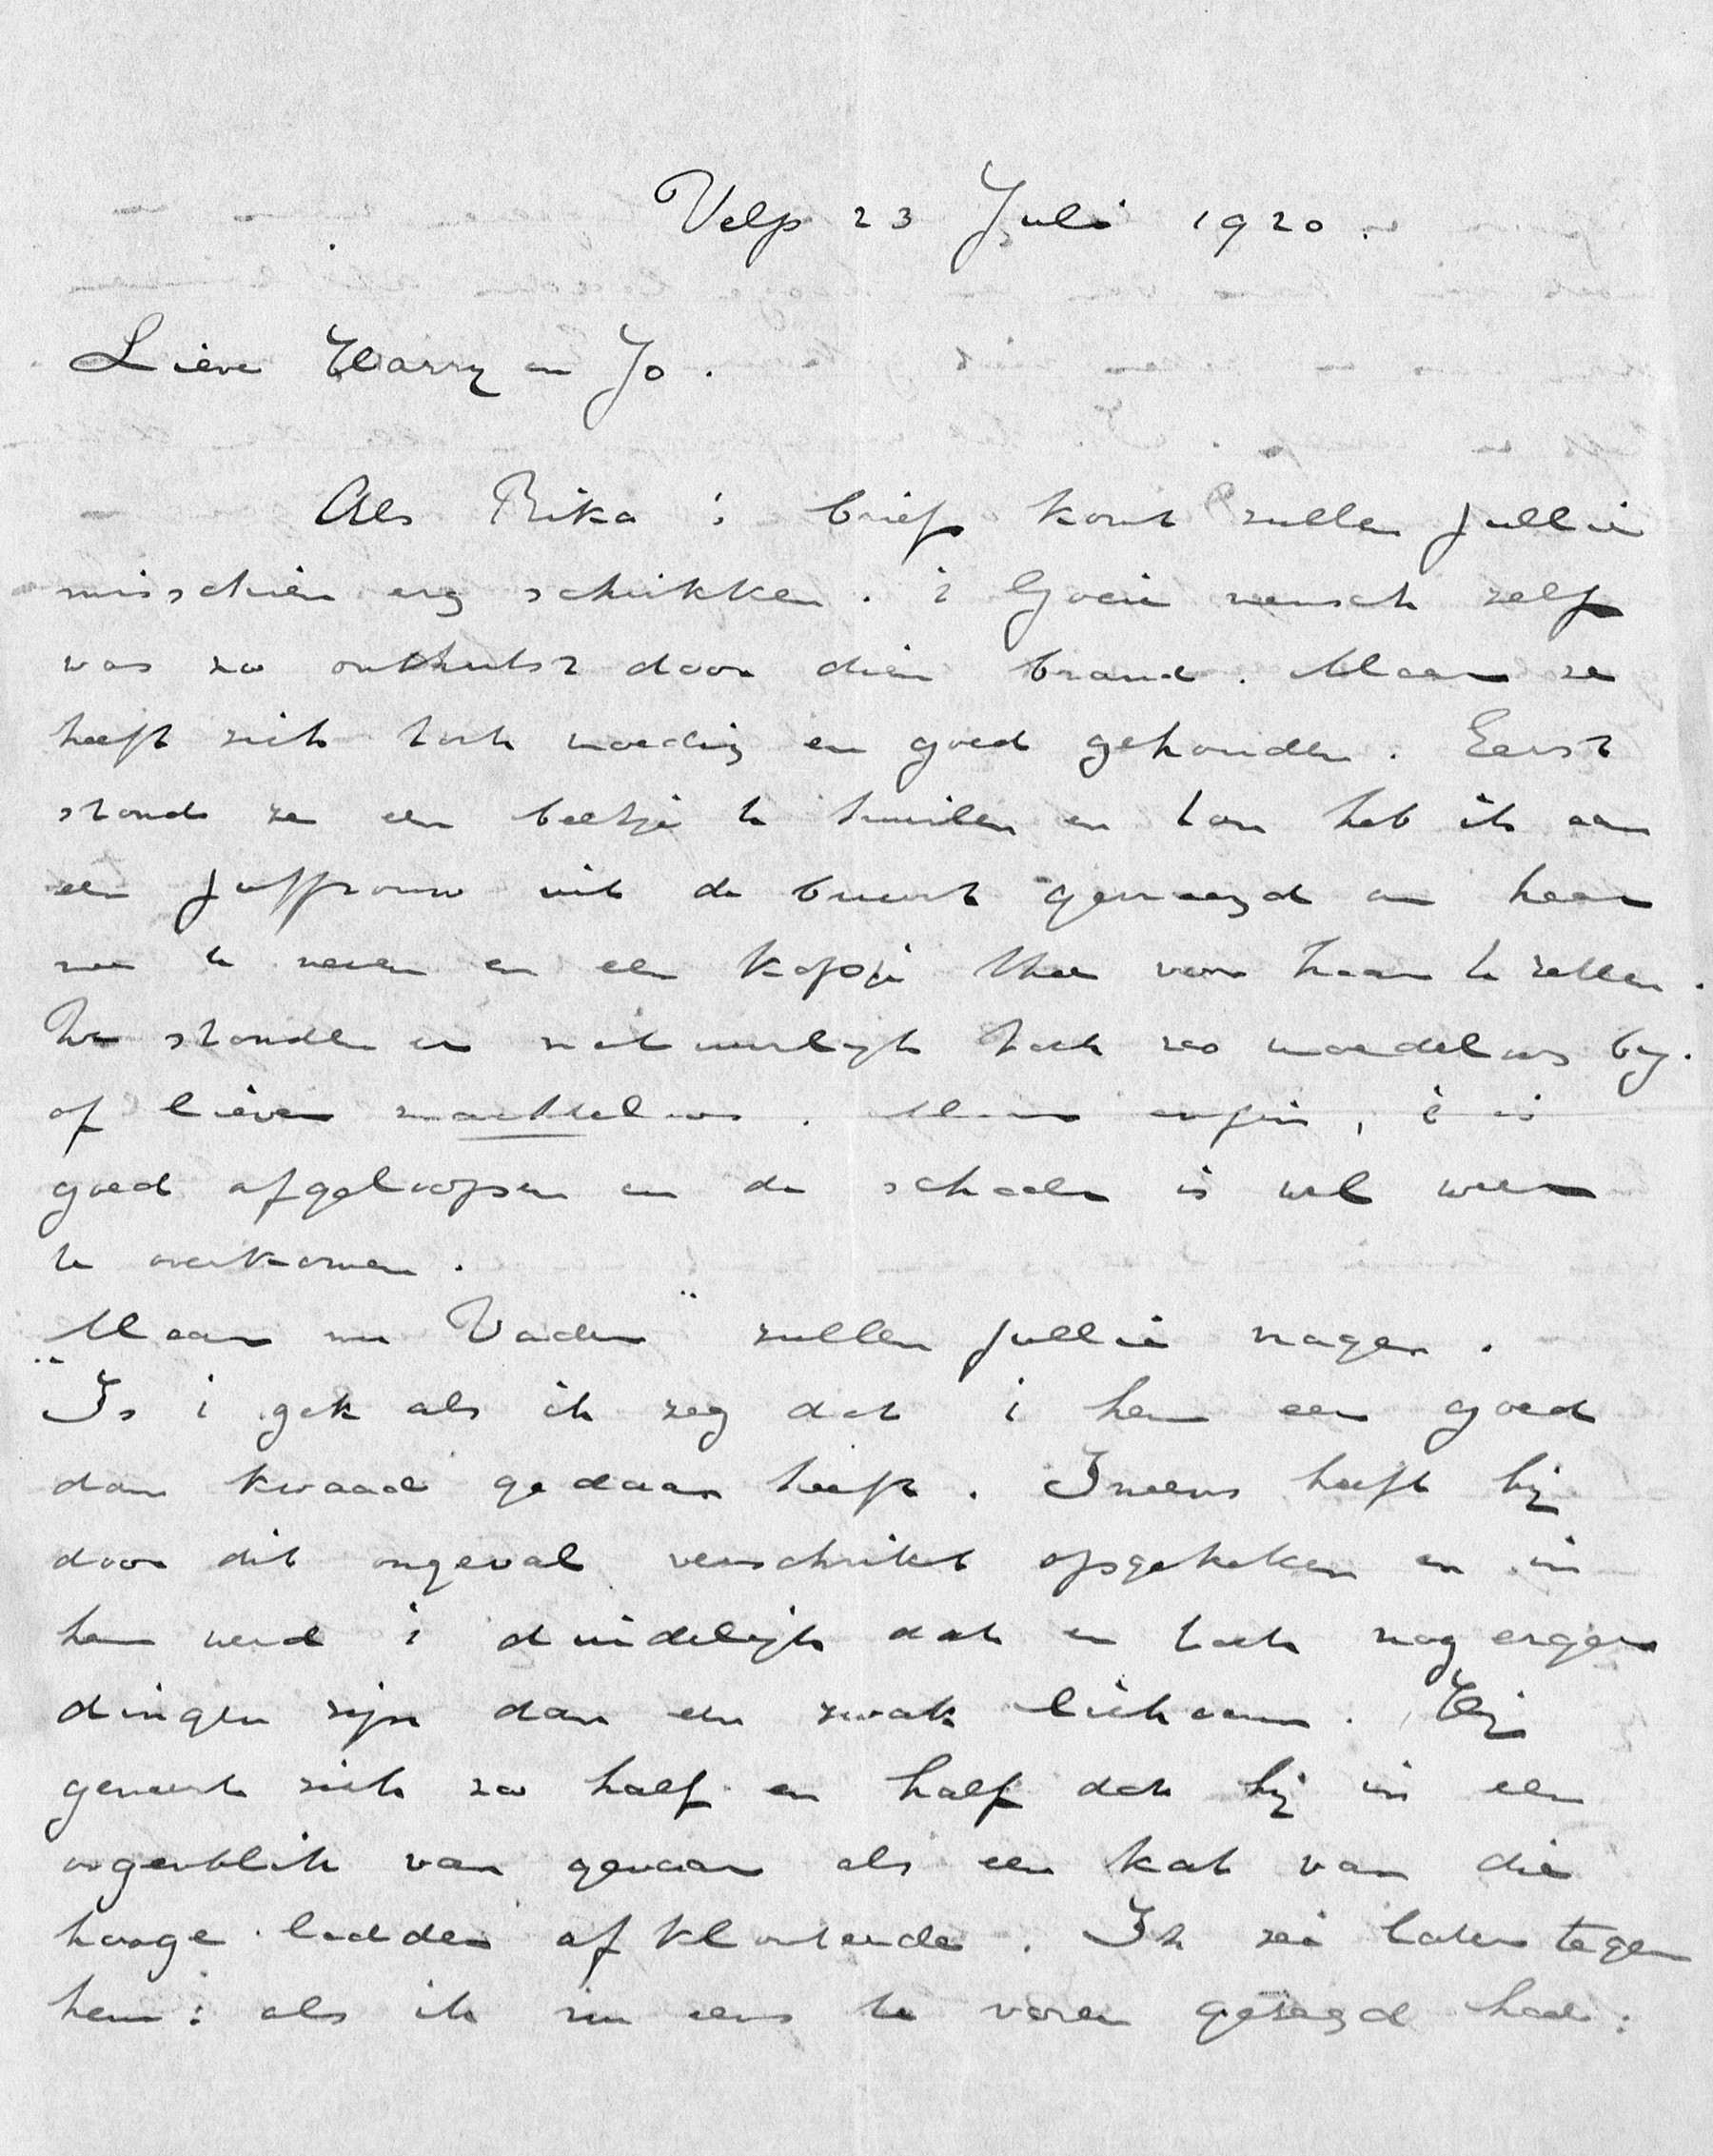 Velp 23 Juli 1920.
Lieve Harry en Jo.
Als Rika 's brief komt zullen jullie
misschien erg schrikken. 't Goeie mensch zelf
was zoo onthutst door dien brand. Maar ze
heeft zich toch moedig en goed gehouden. Eerst
stond ze een beetje te huilen en toen heb ik aan
een juffrouw uit de buurt gevraagd om haar
mee te nemen en een kopje thee voor haar te zetten.
We stonden er natuurlijk toch zoo moedeloos bij.
of liever machteloos. Maar enfin, 't is
goed afgeloopen en de schade is wel weer
te overkomen.
"Maar nu Vader" zullen jullie vragen.
Is 't gek als ik zeg dat 't hem eer goed
dan kwaad gedaan heeft. Ineens heeft hij
door dit ongeval verschrikt opgekeken en in
hem werd 't duidelijk dat er toch nog erger
dingen zijn dan een zwak lichaam. Hij
geneert zich zoo half en half dat hij in een
oogenblik van gevaar als een kat van die
hooge ladder af klauterde. Ik zei later tegen
hem: als ik nu eens te voren gezegd had: